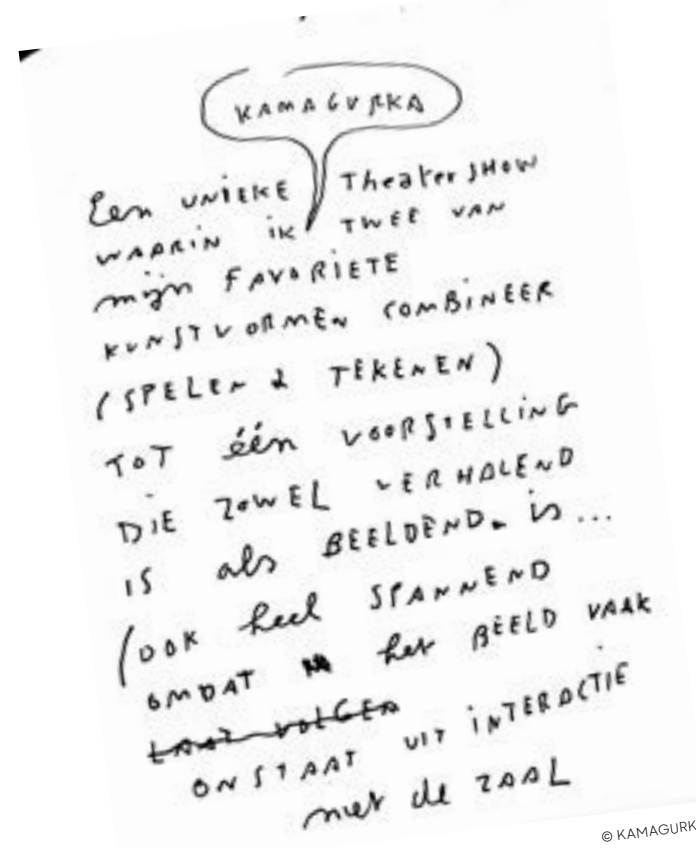 KAMAGURKA
Een UNIEKE TheaterSHOW
WAARIN IK TWEE VAN
mijn FAVORIETE
KUNSTVORMEN COMBINEER
(SPELEN & TEKENEN)
TOT één VOORSTELLING
DIE ZOWEL VERHALEND
IS als BEELDEND. is...
(OOK heel SPANNEND
OMDAT het BEELD VAAK
LAAT VOLGEN
ONSTAAT UIT INTERACTIE
met de ZAAL
© KAMAGURK